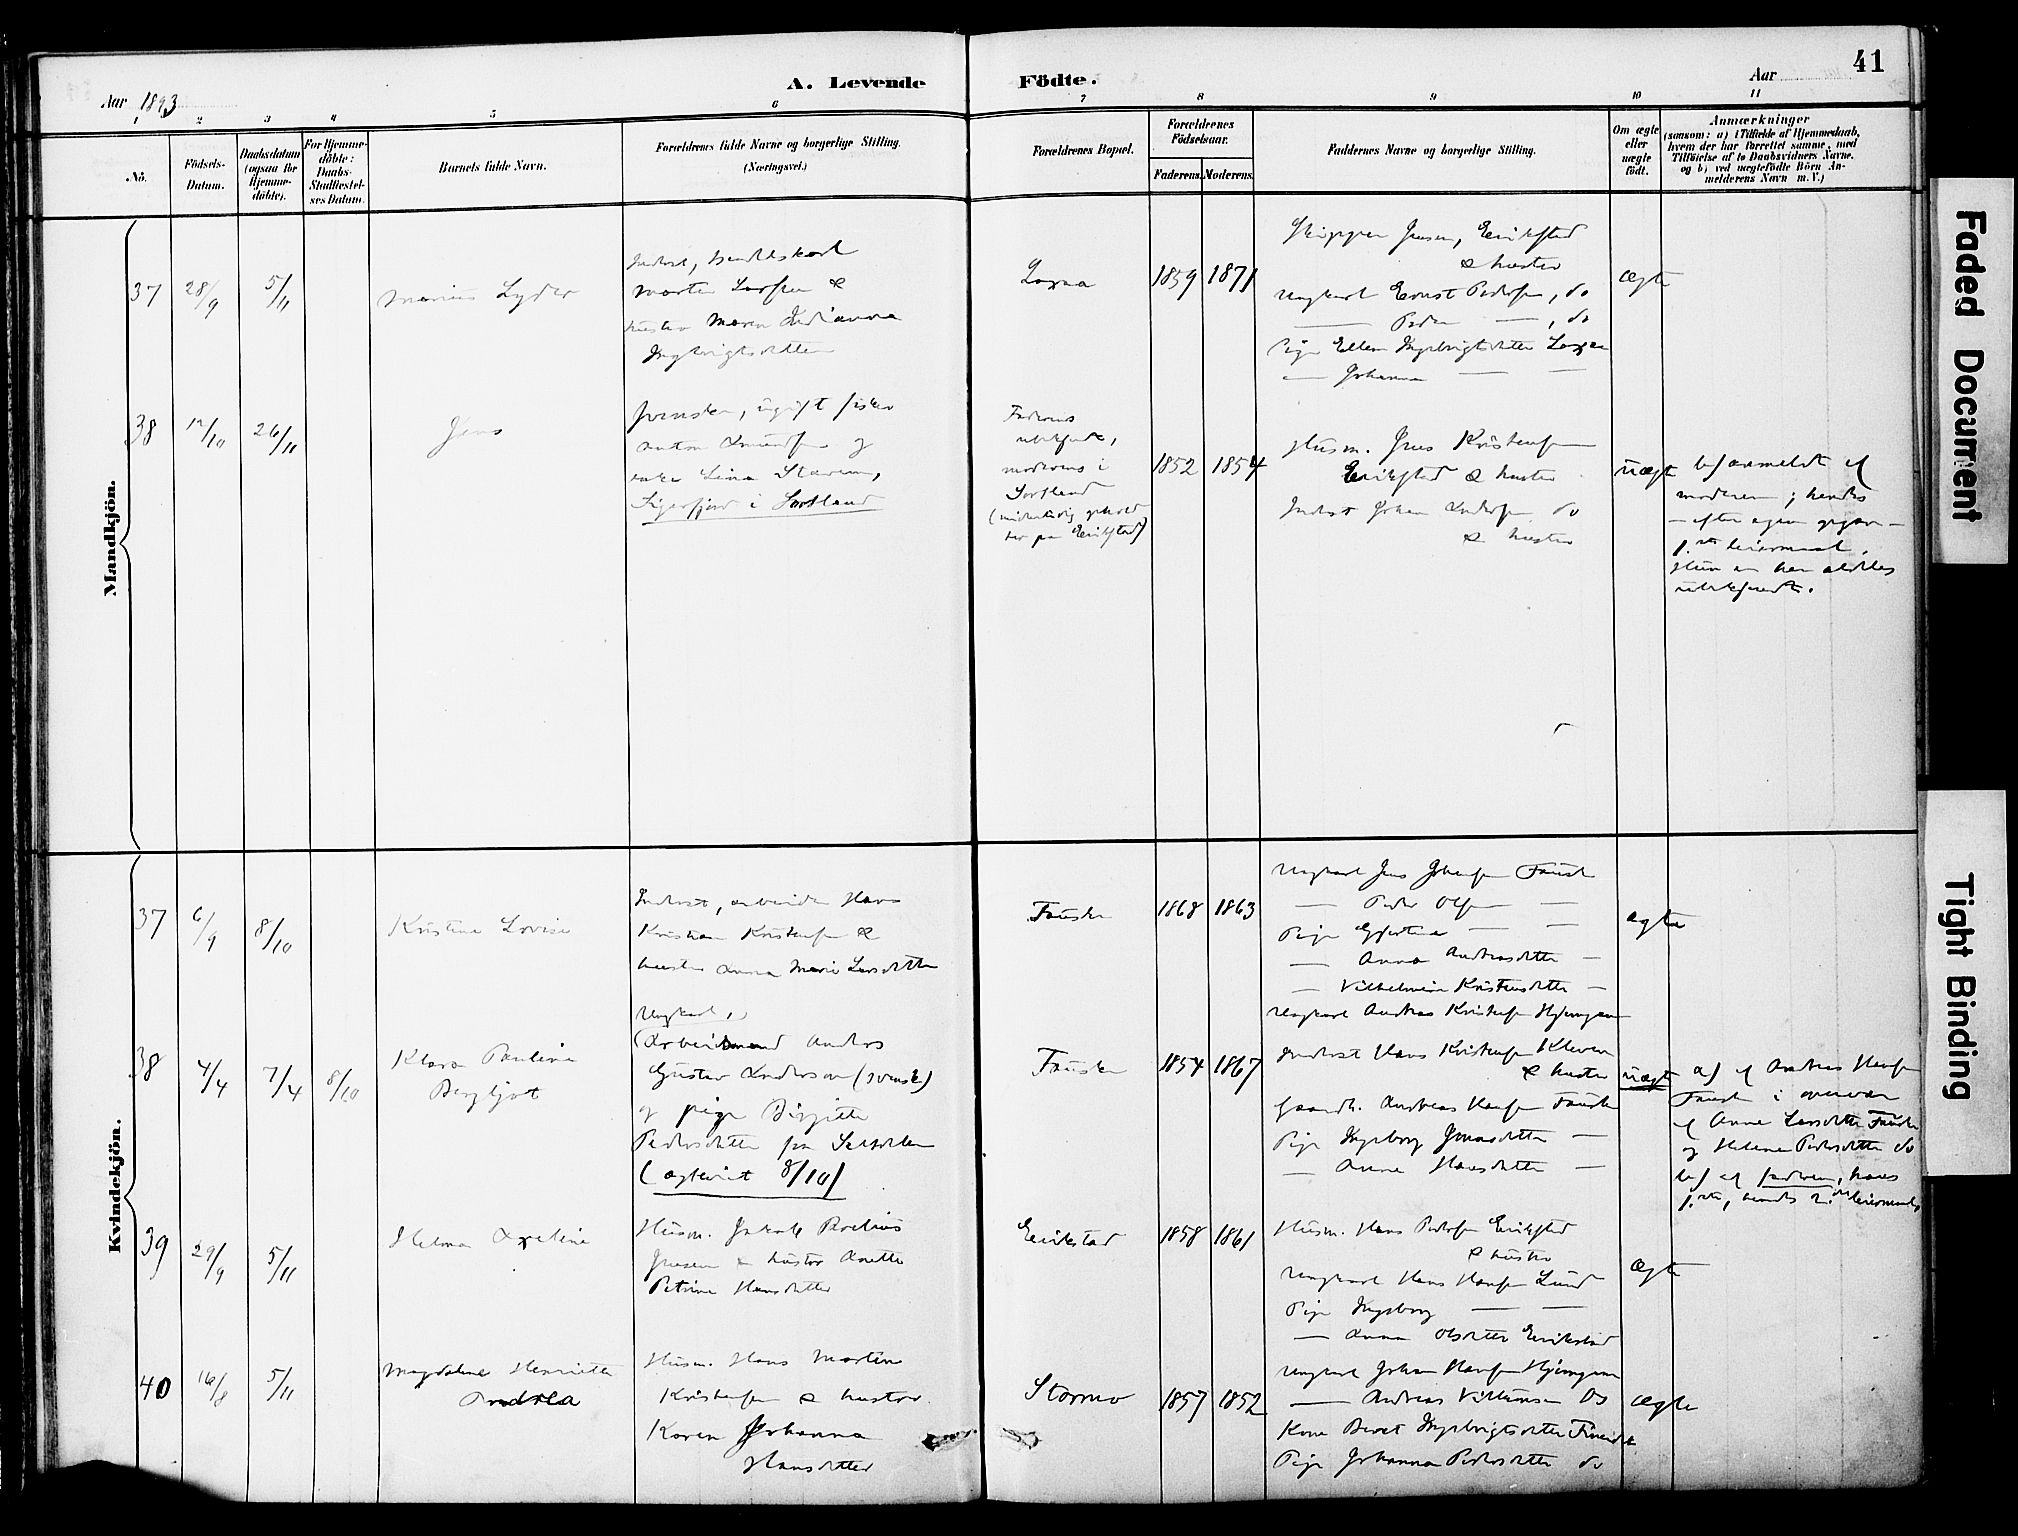 41
A. Levende Födte.
Aar 1893
Aar
1 2 3 4 5 6 7 8 9 10 11
No.
Födsels-
Datum.
Daabsdatum
(ogsaa for
Hjemme-
döbte).
For Hjemme-
döbte:
Daabs-
Stadfæstel-
ses Datum.
Barnets fulde Navn.
Forældrenes fulde Navne og borgerlige Stilling.
(Næringsvei.)
Forældrenes Bopæl.
Forældrenes
Födselsaar.
Faderens. Moderens.
Faddernes Navne og borgerlige Stilling.
Om ægte
eller
uægte
födt.
Anmærkninger
(saasom: a) i Tilfælde af Hjemmedaab,
hvem der har forrettet samme, med
Tilföielse af to Daabsvidners Navne,
og b) ved uægtefödte Börn An-
melderens Navn m. V.)
Mandkjön.
37
28/9
5/11
Marius Lyder
Inderst,
Morten Larsen &
hustru Maren
Ingebrigtsdatter
1859 1871
Jensen, Erikstad
& hustru
Ungkarl Ernst Pedersen, do
— Peder — , do
Pige Ellen Ingebrigtsdatter
— Johanna — —
ægte
38
12/10
26/11
Jens
Svensken, ugift fisker
Anton og
Lina
Sigerfjord i Sortland
Faderens
ubekjendt,
moderens i
Sortland
(midlertidig ophold
her paa Erikstad)
1852 1854
Husm. Jens Kristensen
Erikstad & hustru
Inderst Johan do
& hustru
uægte
b) anmeldt af
moderen; hendes
— efter egen opgave —
1.ste leiermaal.
Hun er her aldeles
ubekjendt.
Kvindekjön.
37
6/9
8/10
Kristine Lovise
Inderst, arbeider Hans
Kristian Kristensen &
hustru Anna Marie Larsdatter
Fauske
1868 1863
Ungkarl Jens Johansen Fauske
— Peder Olsen —
Pige — —
— Anna Andreasdatter —
— Vilhelmine Kristensdatter —
Ungkarl Andreas Kristensen Hjemgam
ægte
38
4/4
7/4
8/10
Klara Pauline
Bergljot
Ungkarl,
(Arbeidsmand Anders
Gustav Anderson (svensk)
og pige Birgitte
Pedersdatter fra
(ægteviet 8/10)
Fauske
1854 1867
Inderst Hans Kristensen Kleven
& hustru
Gaardb. Andreas Hansen Fauske
Pige Ingeborg Jonasdatter —
— Anna Hansdatter —
uægte
a) af Andreas Hansen
Fauske i overvær
af Anne Larsdatter Fauske
og Helene Pedersdatter do
b) af faderen, hans
1.ste, hendes 2.det leiermaal
39
29/9
5/11
Helma Axeline
Husm. Jakob
Jensen & hustru Anette
Petrine Hansdatter
Erikstad
1858 1861
Husm. Hans Pedersen Erikstad
& hustru
Ungkarl Hans Hansen Lund
Pige Ingeborg — —
— Anna Olsdatter Erikstad
ægte
40
16/8
5/11
Magdalene Henriette
Andrea
Husm. Hans Morten
Kristensen & hustru
Karen Johanna
Hansdatter
Stormo
1857 1852
Ungkarl Johan Hansen Hjemgam
— Andreas Os
Kone Beret Ingebrigtsdatter
Pige Johanna Pedersdatter do
ægte
Faded Document
Tight Binding